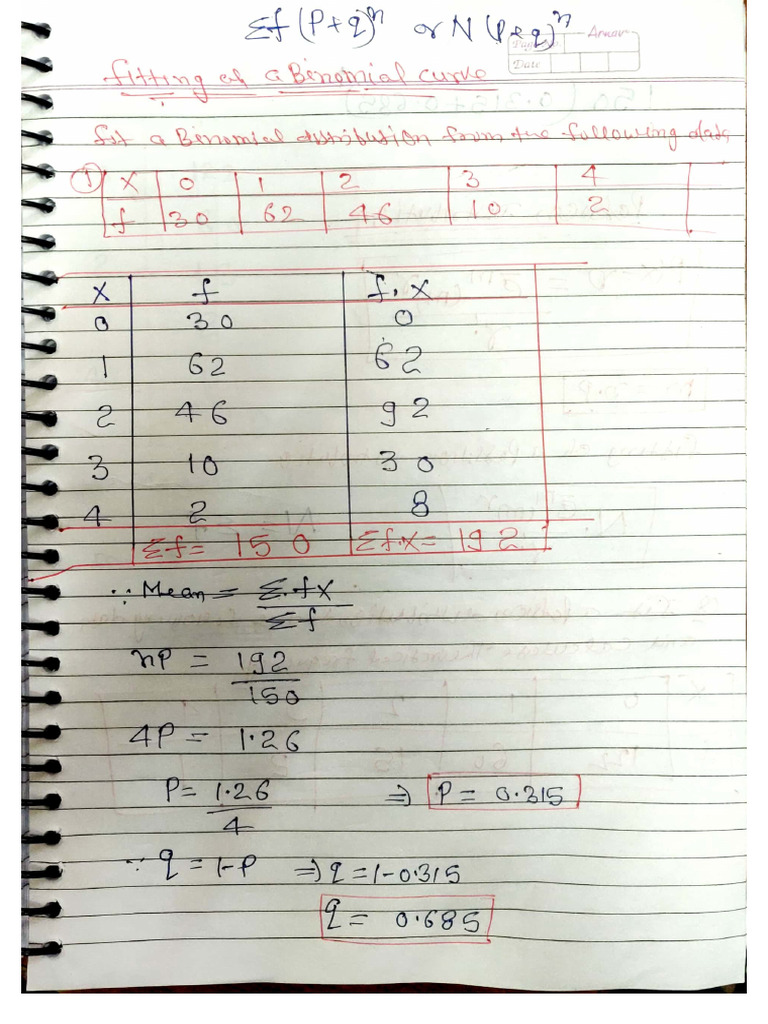 Σf(P+q)ⁿ or N(P+q)ⁿ
Page No.
Date
fitting of a Binomial curve
fit a Binomial distribution from the following data
① X 0 1 2 3 4
f 30 62 46 10 2
X f f.X
0 30 0
1 62 62
2 46 92
3 10 30
4 2 8
Σf= 150 Σf.X= 192
∵ Mean = Σ.fX / Σf
nP = 192 / 150
4P = 1.26
P= 1.26 / 4 ⇒ P= 0.315
∵ q = 1-P ⇒ q = 1-0.315
q= 0.685